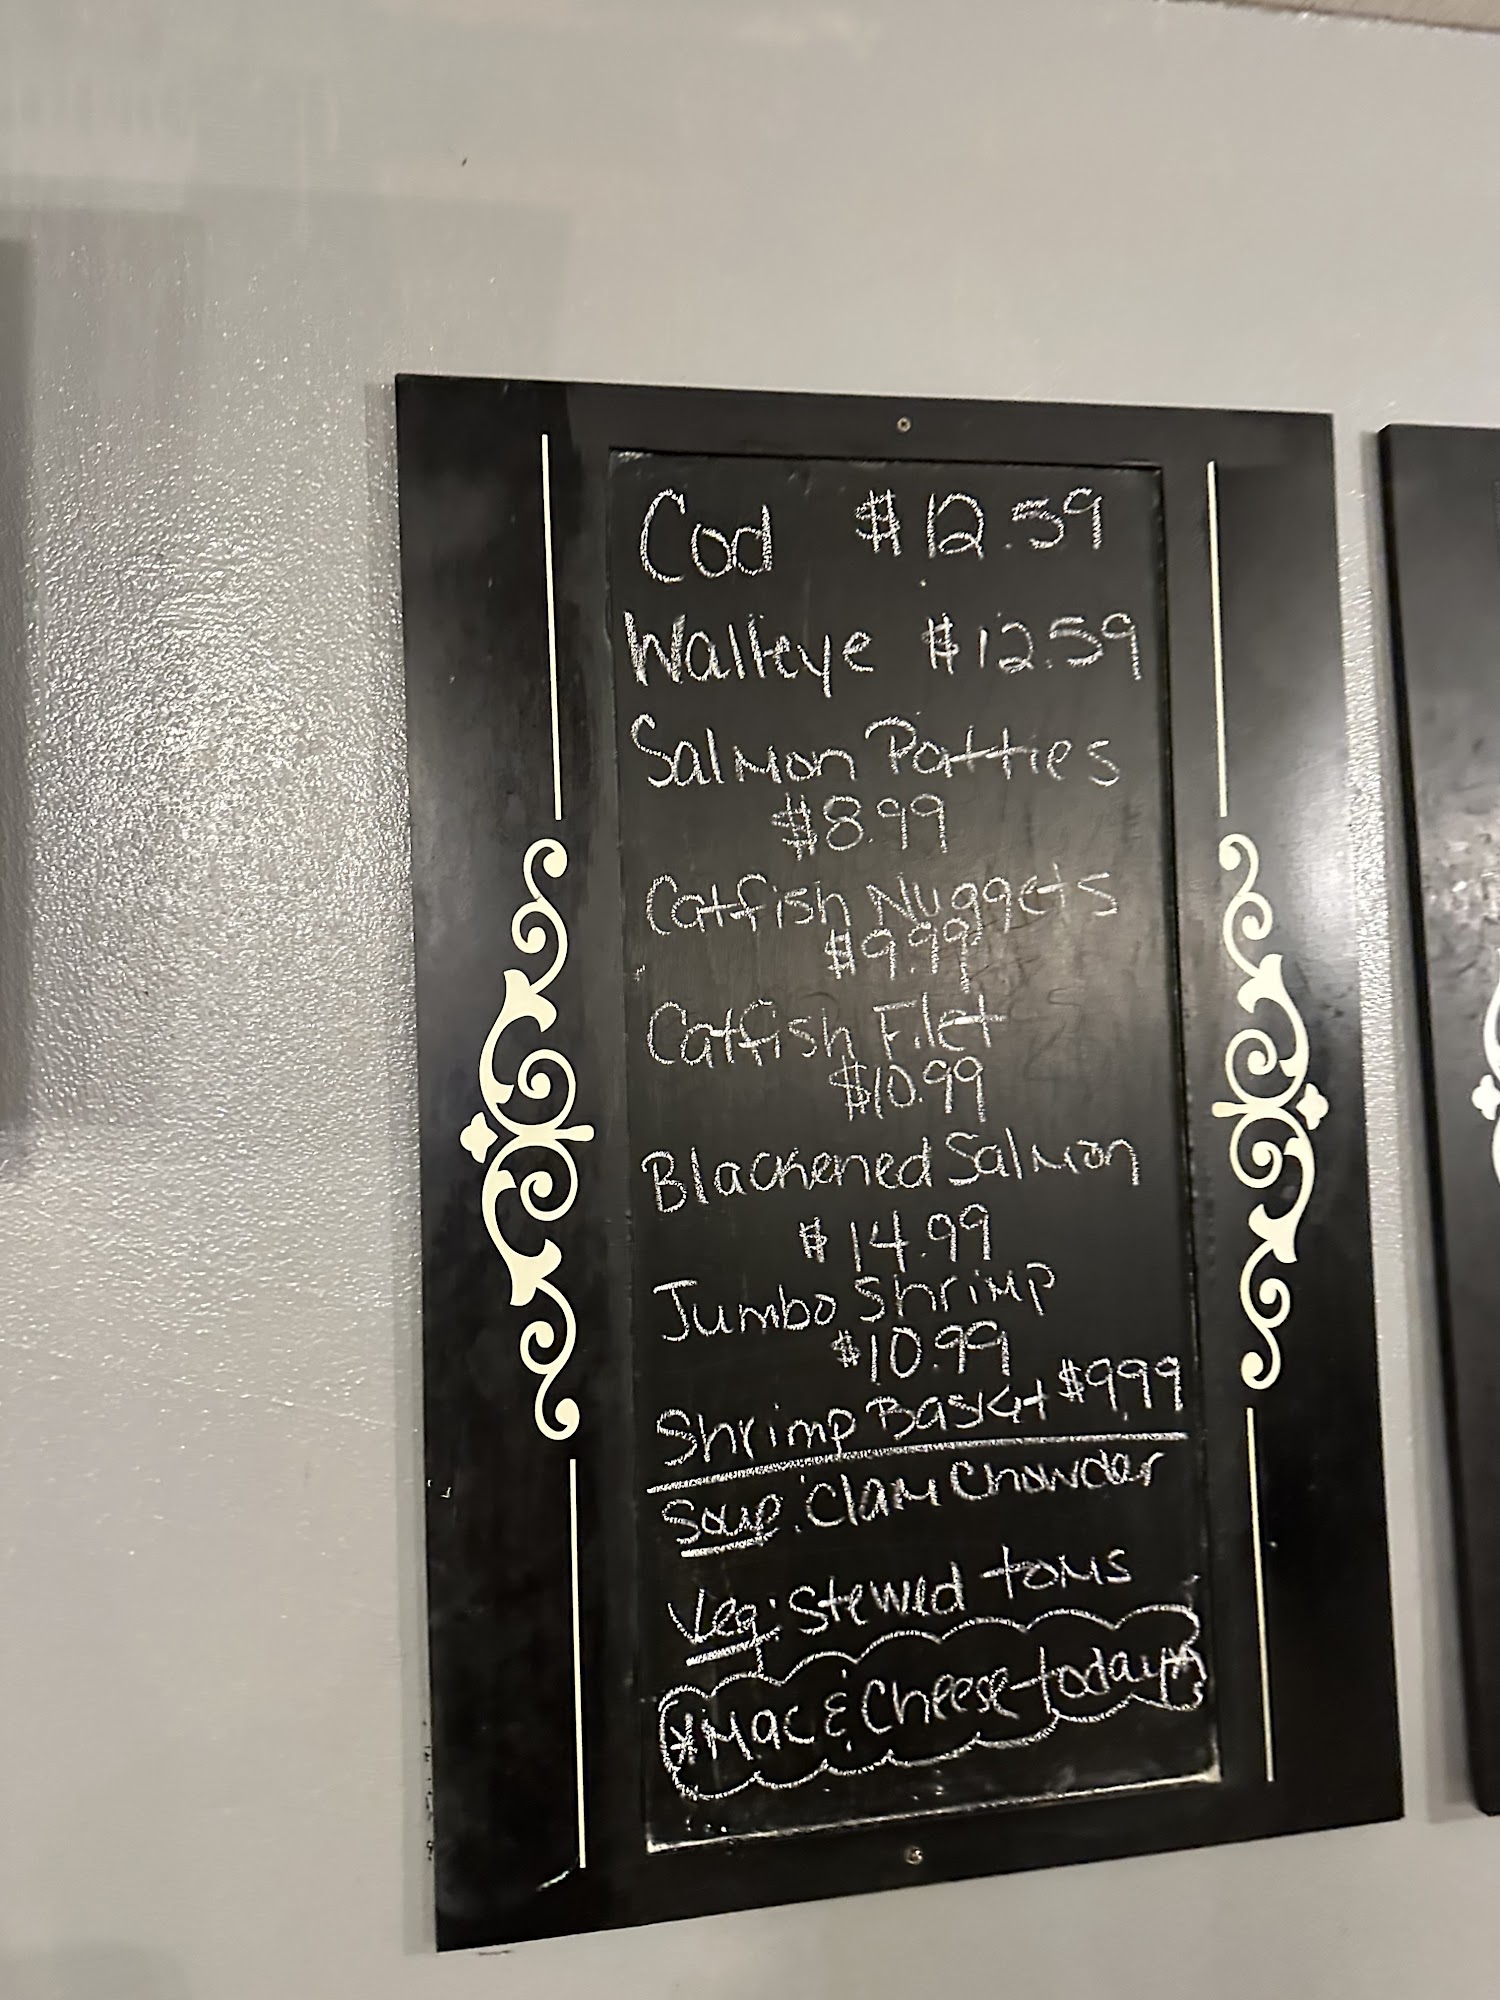 Cod $12.59
Walleye $12.59
Salmon Patties
$8.99
Catfish Nuggets
$9.99
Catfish Filet
$10.99
Blackened Salmon
$14.99
Jumbo Shrimp
$10.99
Shrimp Basket $9.99
Soup: Clam Chowder
Veg: Stewed toms
*Mac & Cheese today*